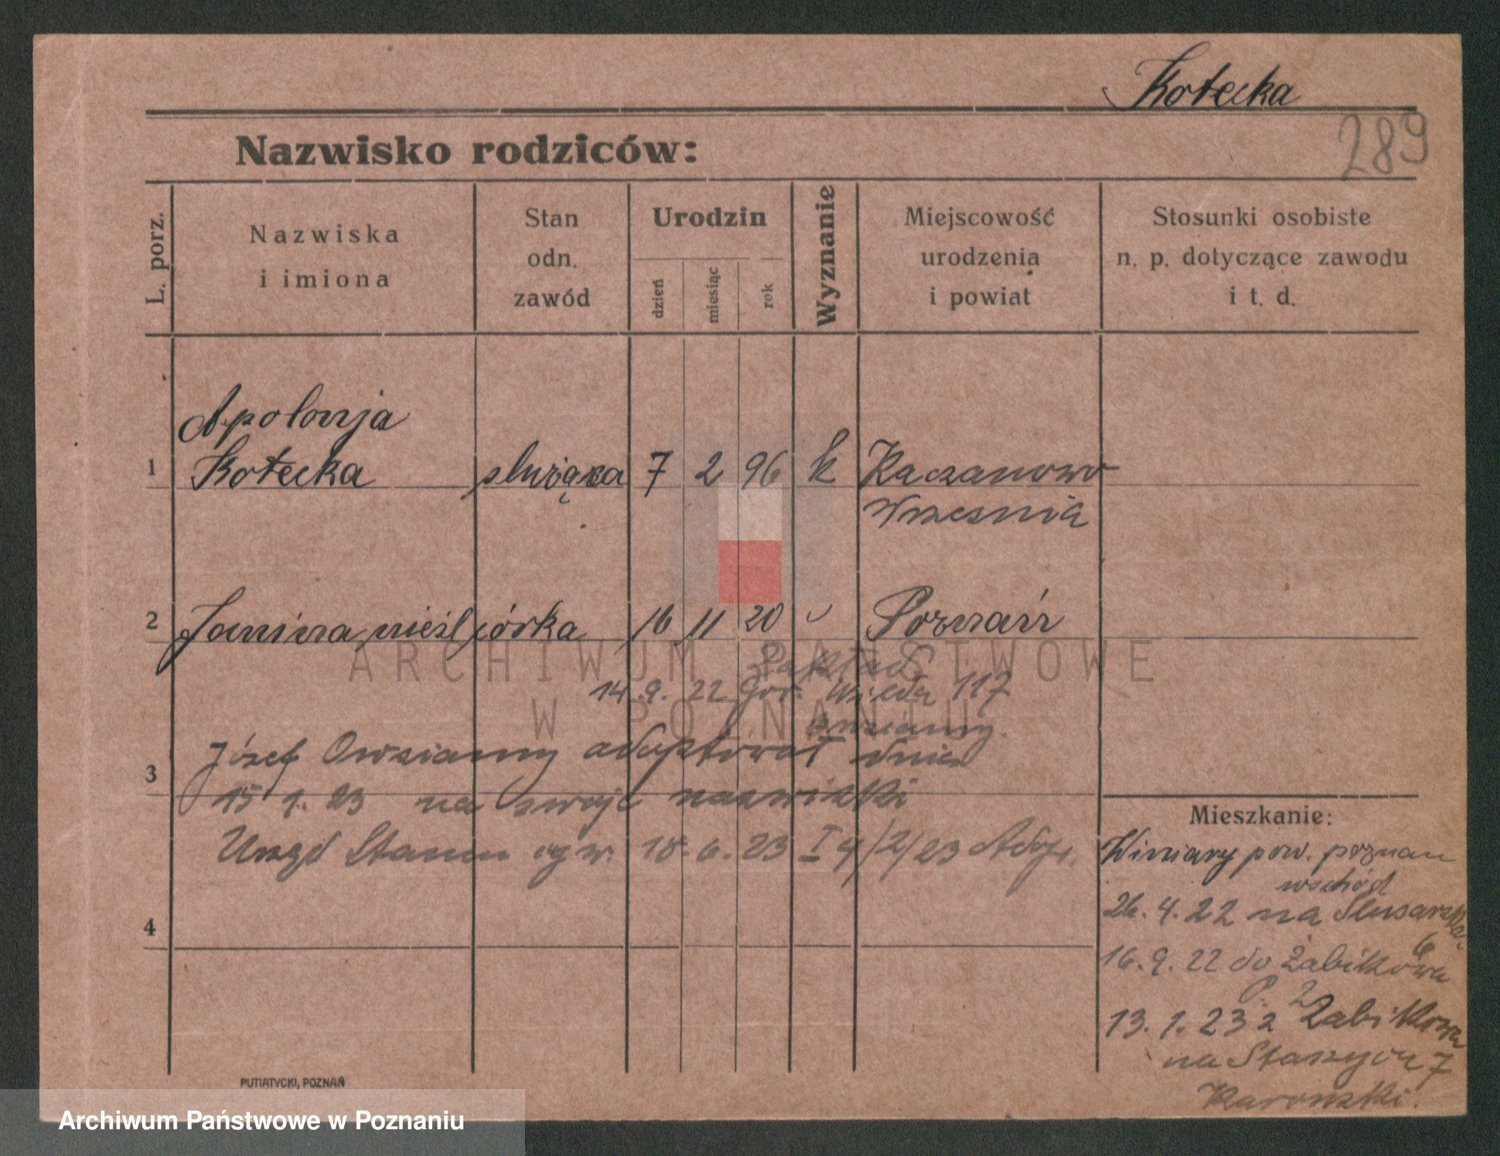 Kotecka
289
Nazwisko rodziców:
L. porz.
Nazwiska
i imiona
Stan
odn.
zawód
Urodzin
dzień
miesiąc
rok
Wyznanie
Miejscowość
urodzenia
i powiat
Stosunki osobiste
n. p. dotyczące zawodu
i t. d.
Apolonja
1 Kotecka służąca 7 2 96 k Kaczanowo
Września
2 Janina nieśl córka 16 11 20 Poznań
Zakład
14.9. 22 Gór. Wilda 117
Józef Owsianny adoptował dnia
3
15 1. 23 na swoje nazwisko
Urząd Stanu 18.6. 23 I 4/2/23
4
Mieszkanie:
Winiary pow. poznan
wschód
26.4.22 na Ślusarska
6
16.9.22 do Żabikowa
13.1.23 z Żabikowa
na 7
PUTIATYCKI, POZNAŃ
ARCHIWUM PAŃSTWOWE
W POZNANIU
Archiwum Państwowe w Poznaniu